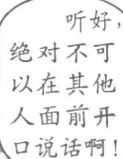 听好，
绝对不可
以在其他
人面前开
口说话啊！